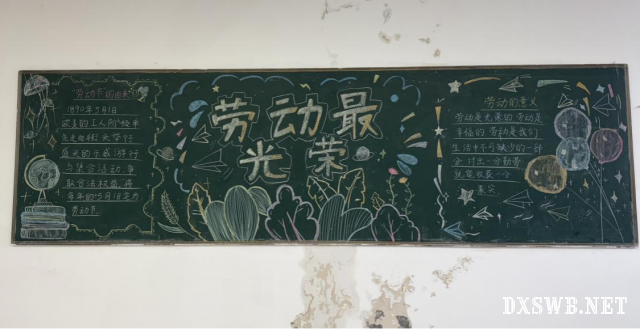 "劳动节的由来"
1890年5月1日
欧美的工人阶级率
先走向街头举行
盛大的示威游行
与集会活动,争
取合法权益,将
每年的5月1日定为
劳动节
劳动最
光荣
劳动的意义
劳动是光荣的劳动是
幸福的 劳动是我们
生活中不可减少的一种
付出一分勤劳
就能收获一个
果实
DXSWB.NET